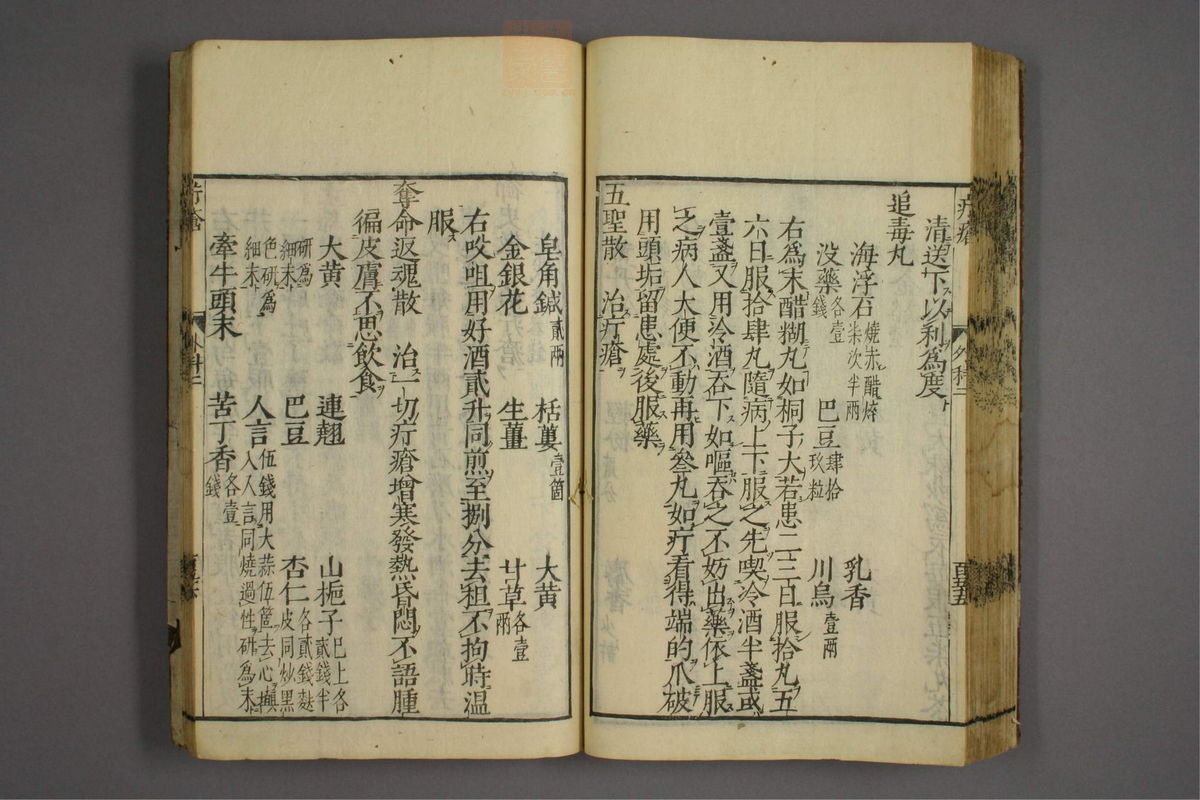 疔瘡
外科二
百五
清送下以利為度
追毒丸
海浮石 燒赤醋焠柒次半兩
乳香
没藥 各壹錢
巴豆 肆拾玖粒
川烏 壹兩
右為末醋糊丸如桐子大若患二三日服拾丸五
六日服拾肆丸隨病上下服之先喫冷酒半盞或
壹盞又用冷酒吞下如嘔吞之不妨出藥依上服
之病人大便不動再用叄丸如疔看得端的爪破
用頭垢留患處後服藥
五聖散 治疔瘡
皂角鍼 貳兩
栝蔞 壹箇
大黄
金銀花
生薑
甘草 各壹兩
右㕮咀用好酒貳升同煎至捌分去柤不拘時温
服
奪命返魂散 治一切疔瘡增寒發熱昏悶不語腫
徧皮膚不思飲食
大黄
連翹
山梔子 巳上各貳錢半
研為細末
巴豆
杏仁 各貳錢麩皮同炒黑
色研為細末
人言 伍錢用大蒜伍箇去心
入人言同燒過性研為末
牽牛頭末
苦丁香 各壹錢
疔瘡
外科二